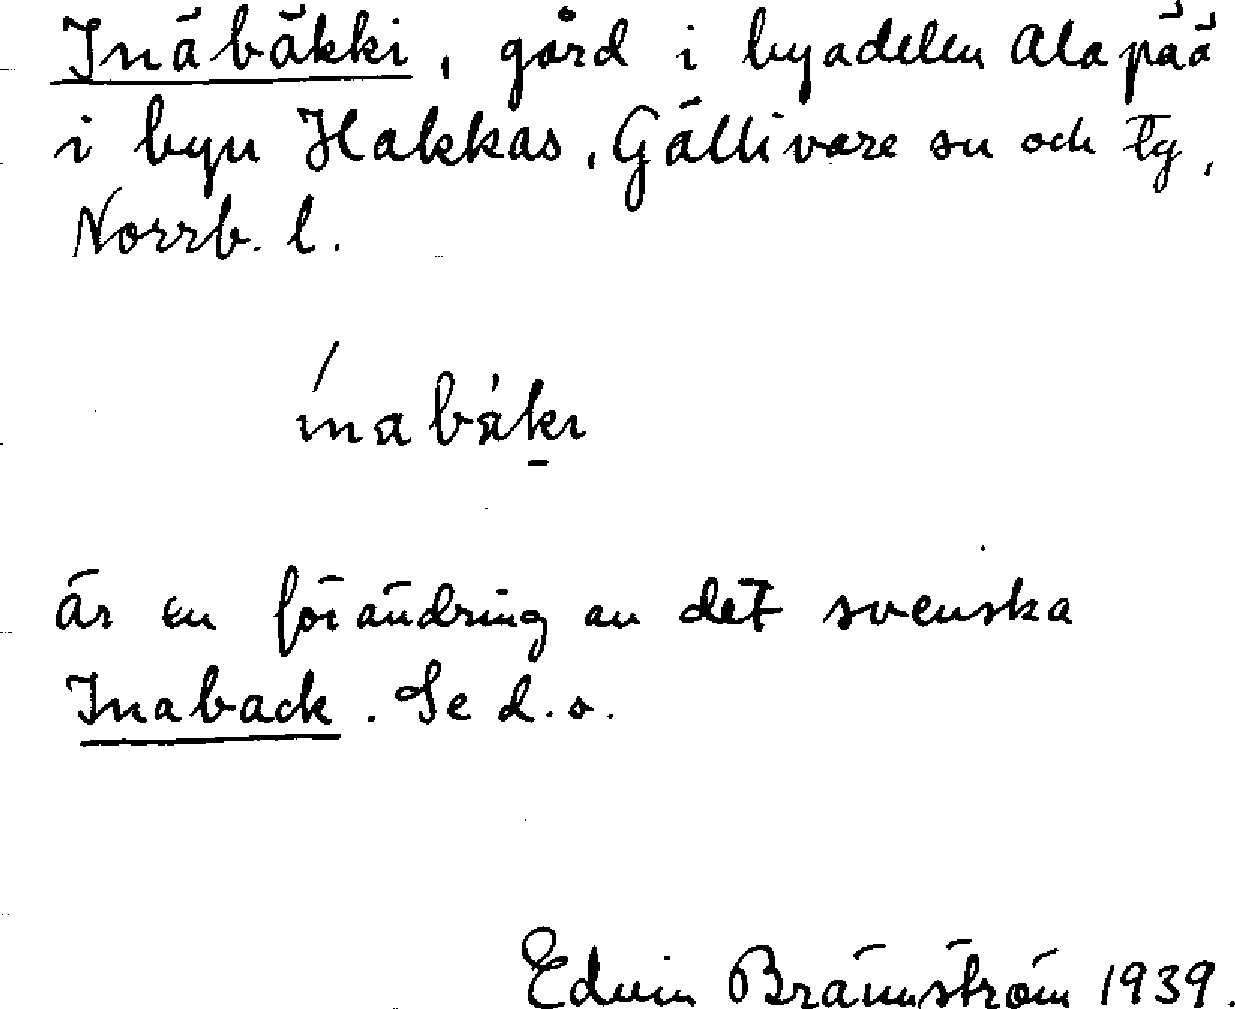 Inäbäkki, gård i byadelen Alapää
i byn Hakkas, Gällivare sn och tg,
Norrb. l.
ínabákı
är en förändring av det svenska
Inaback. Se d.o.
Edvin Brännström 1939.